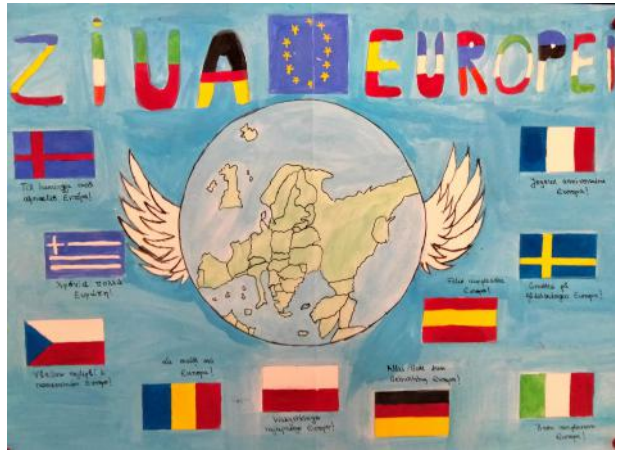 ZIUA EUROPEI
Til hamingju með
afmælið Evrópa!
Joyeux anniversaire
Europa!
Χρόνια πολλά
Ευρώπη!
Feliz cumpleaños
Europa!
Grattis på
födelsedagen Europa!
Všechno nejlepší k
narozeninám Evropo!
La mulți ani
Europa!
Wszystkiego
najlepszego Europo!
Alles Gute zum
Geburtstag Europa!
Buon compleanno
Europa!